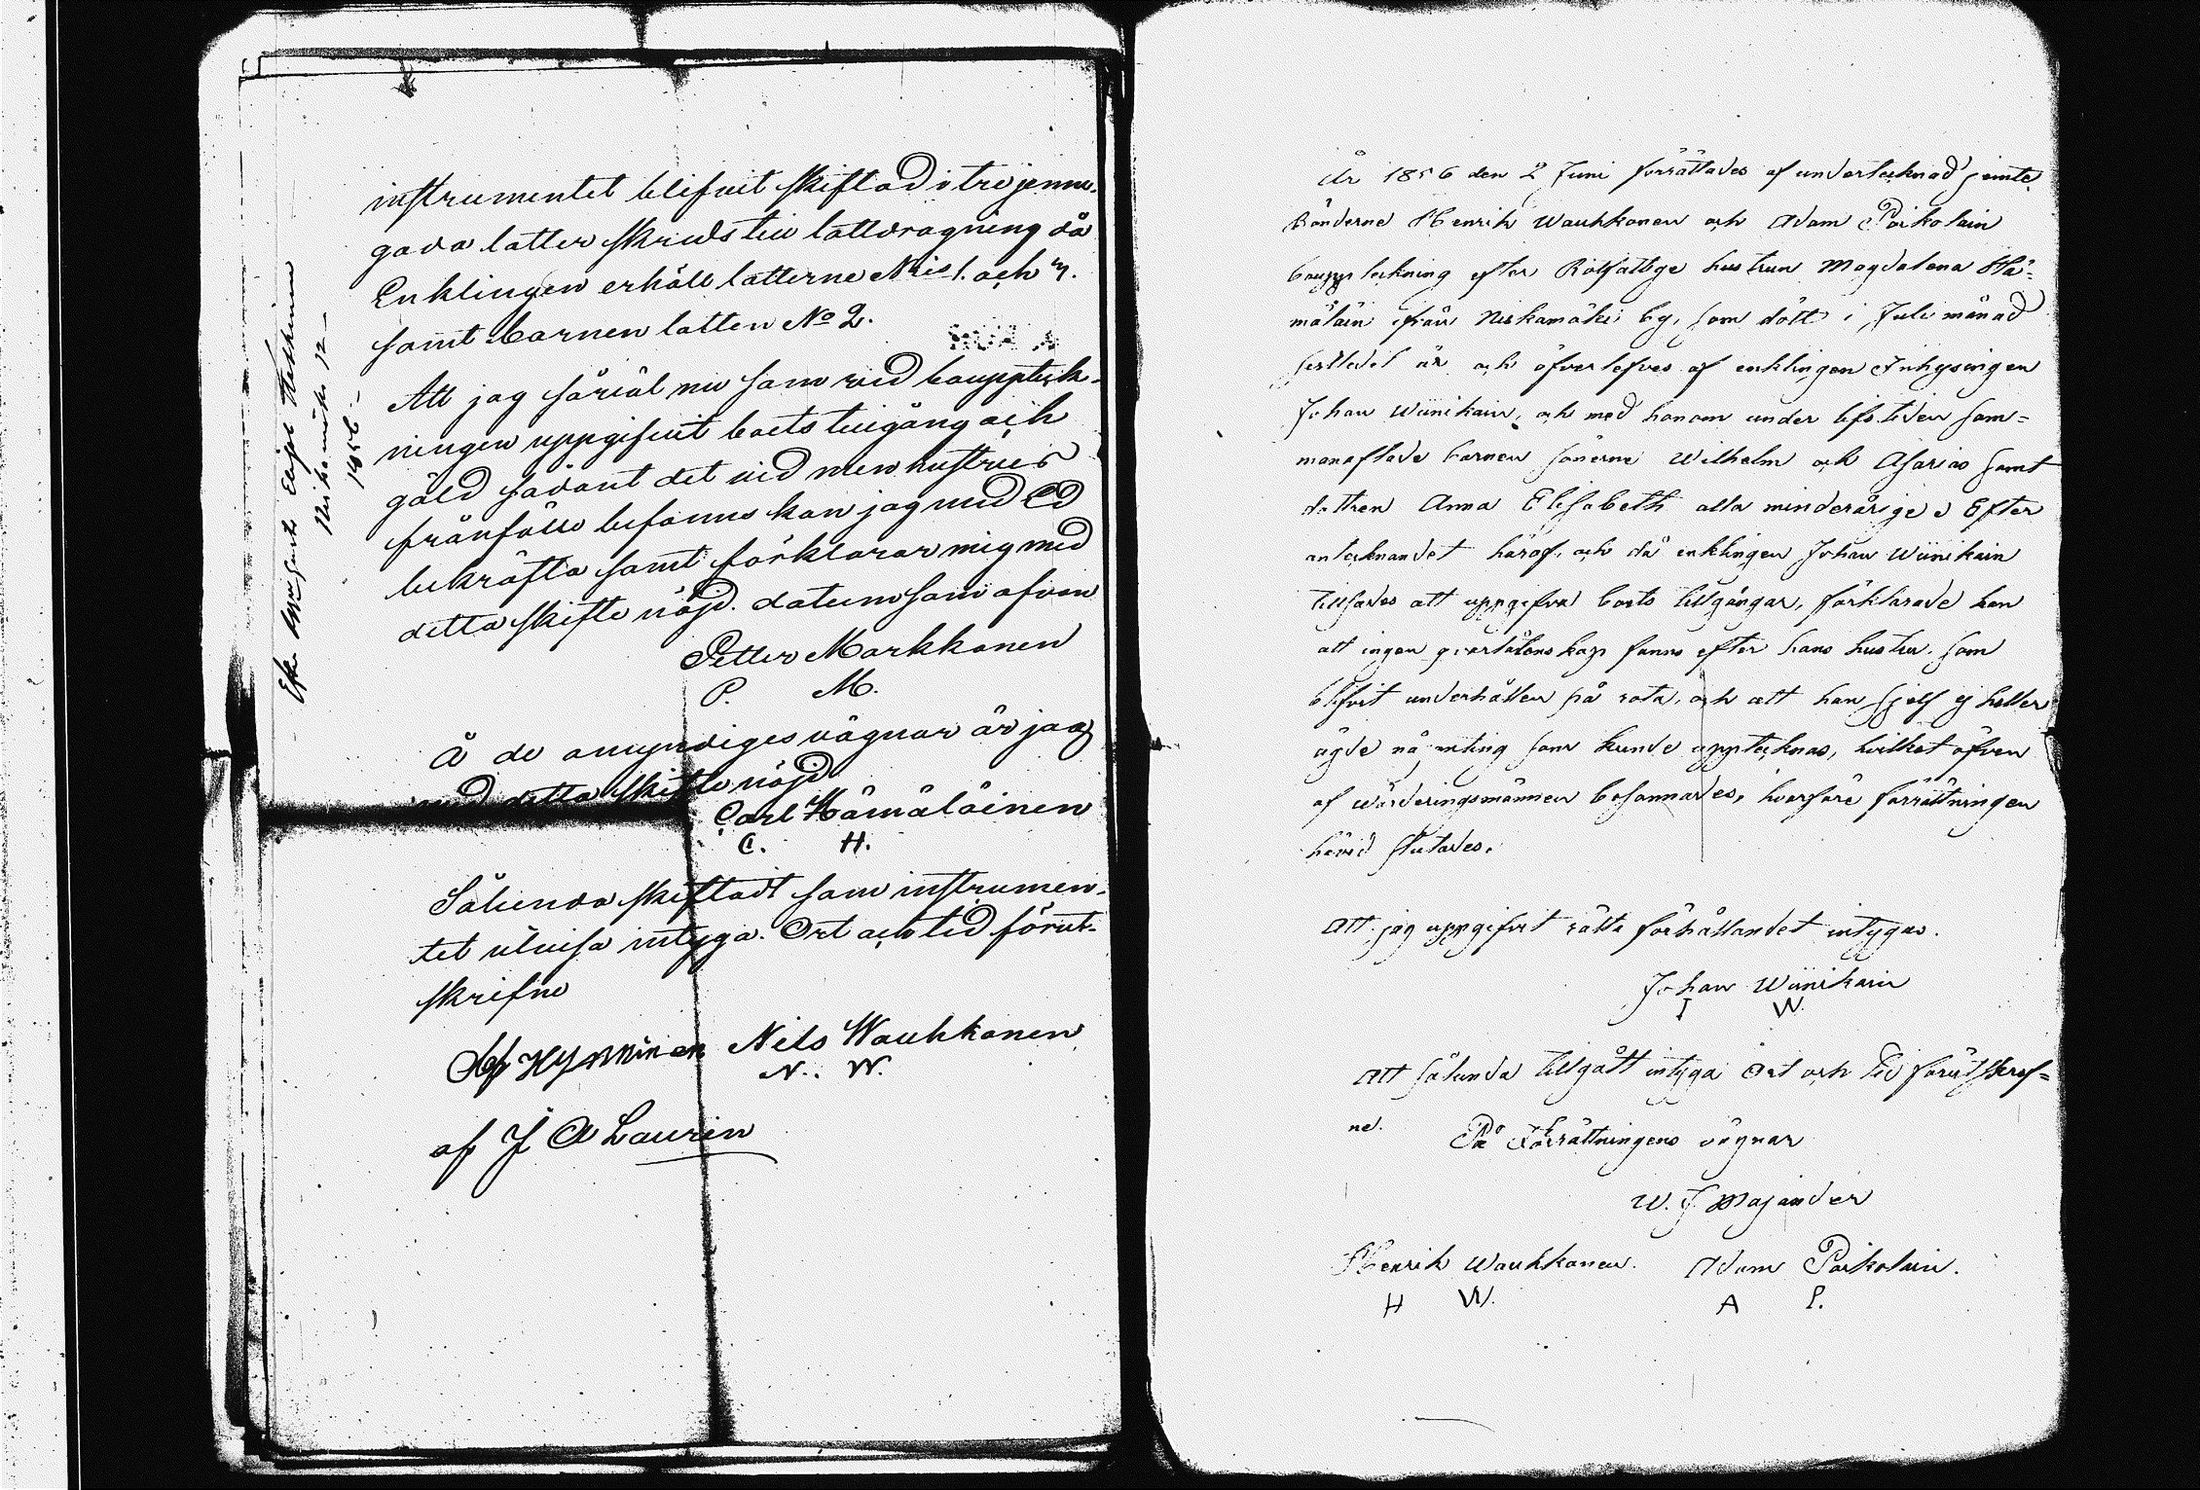 instrumentet blifvit skiftad i tre jemn-
goda lotter skreds till lottdragning då
Enklingen erhöll lotterne N:ris 1. och 3.
samt barnen lotten No 2.
Att jag såväl nu som vid bouppteck-
ningen uppgifvit boets tillgång och
gäld sådant det vid min hustrus
frånfälle befanns kan jag med Ed
bekräfta samt förklarar mig med
detta skifte nöjd. datum som ofvan
Petter Markkanen
P. M.
Å de omyndiges vägnar är jag
med detta skifte nöjd
Carl Hämäläinen
C. H.
Sålunda skiftadt som instrumen-
tet utvisa intyga. Ort och tid förut-
skrifne
Nils Wauhkonen
N. W.
af J A Laurin
1856
År 1856 den 2 Juni förrättades af undertecknad jemte
bönderne Henrik Wauhkonen och Adam Poikolain
bouppteckning efter Rotfattige hustrun Magdalena Hä=
mäläin ifrån Niskamäki by, som dött i Juli månad
sistledet år och öfverlefves af enklingen Inhysingen
Johan Wiinikain, och med honom under lifstiden sam=
manaflade barnen sönerne Wilhelm och Asarias samt
dottren Anna Elisabeth alla minderårige. Efter
antecknandet häraf, och då enklingen Johan Wiinikain
tillsades att uppgifva boets tillgångar, förklarade han
att ingen qvarlåtenskap fanns efter hans hustru, som
blifvit underhållen på rota, och att han sjelf ej heller
ägde någonting som kunde upptecknas, hvilket äfven
af Wärderingsmännen besannades, hvarföre förrättningen
härvid slutades.
Att jag uppgifvit rätta förhållandet intygas.
Johan Wiinikain
I W
Att sålunda tillgått intyga Ort och tid förutskref=
ne.
På Förrättningens vägnar
W. J. Majander
Henrik Wauhkonen. Adam Poikolain.
H W. A P.